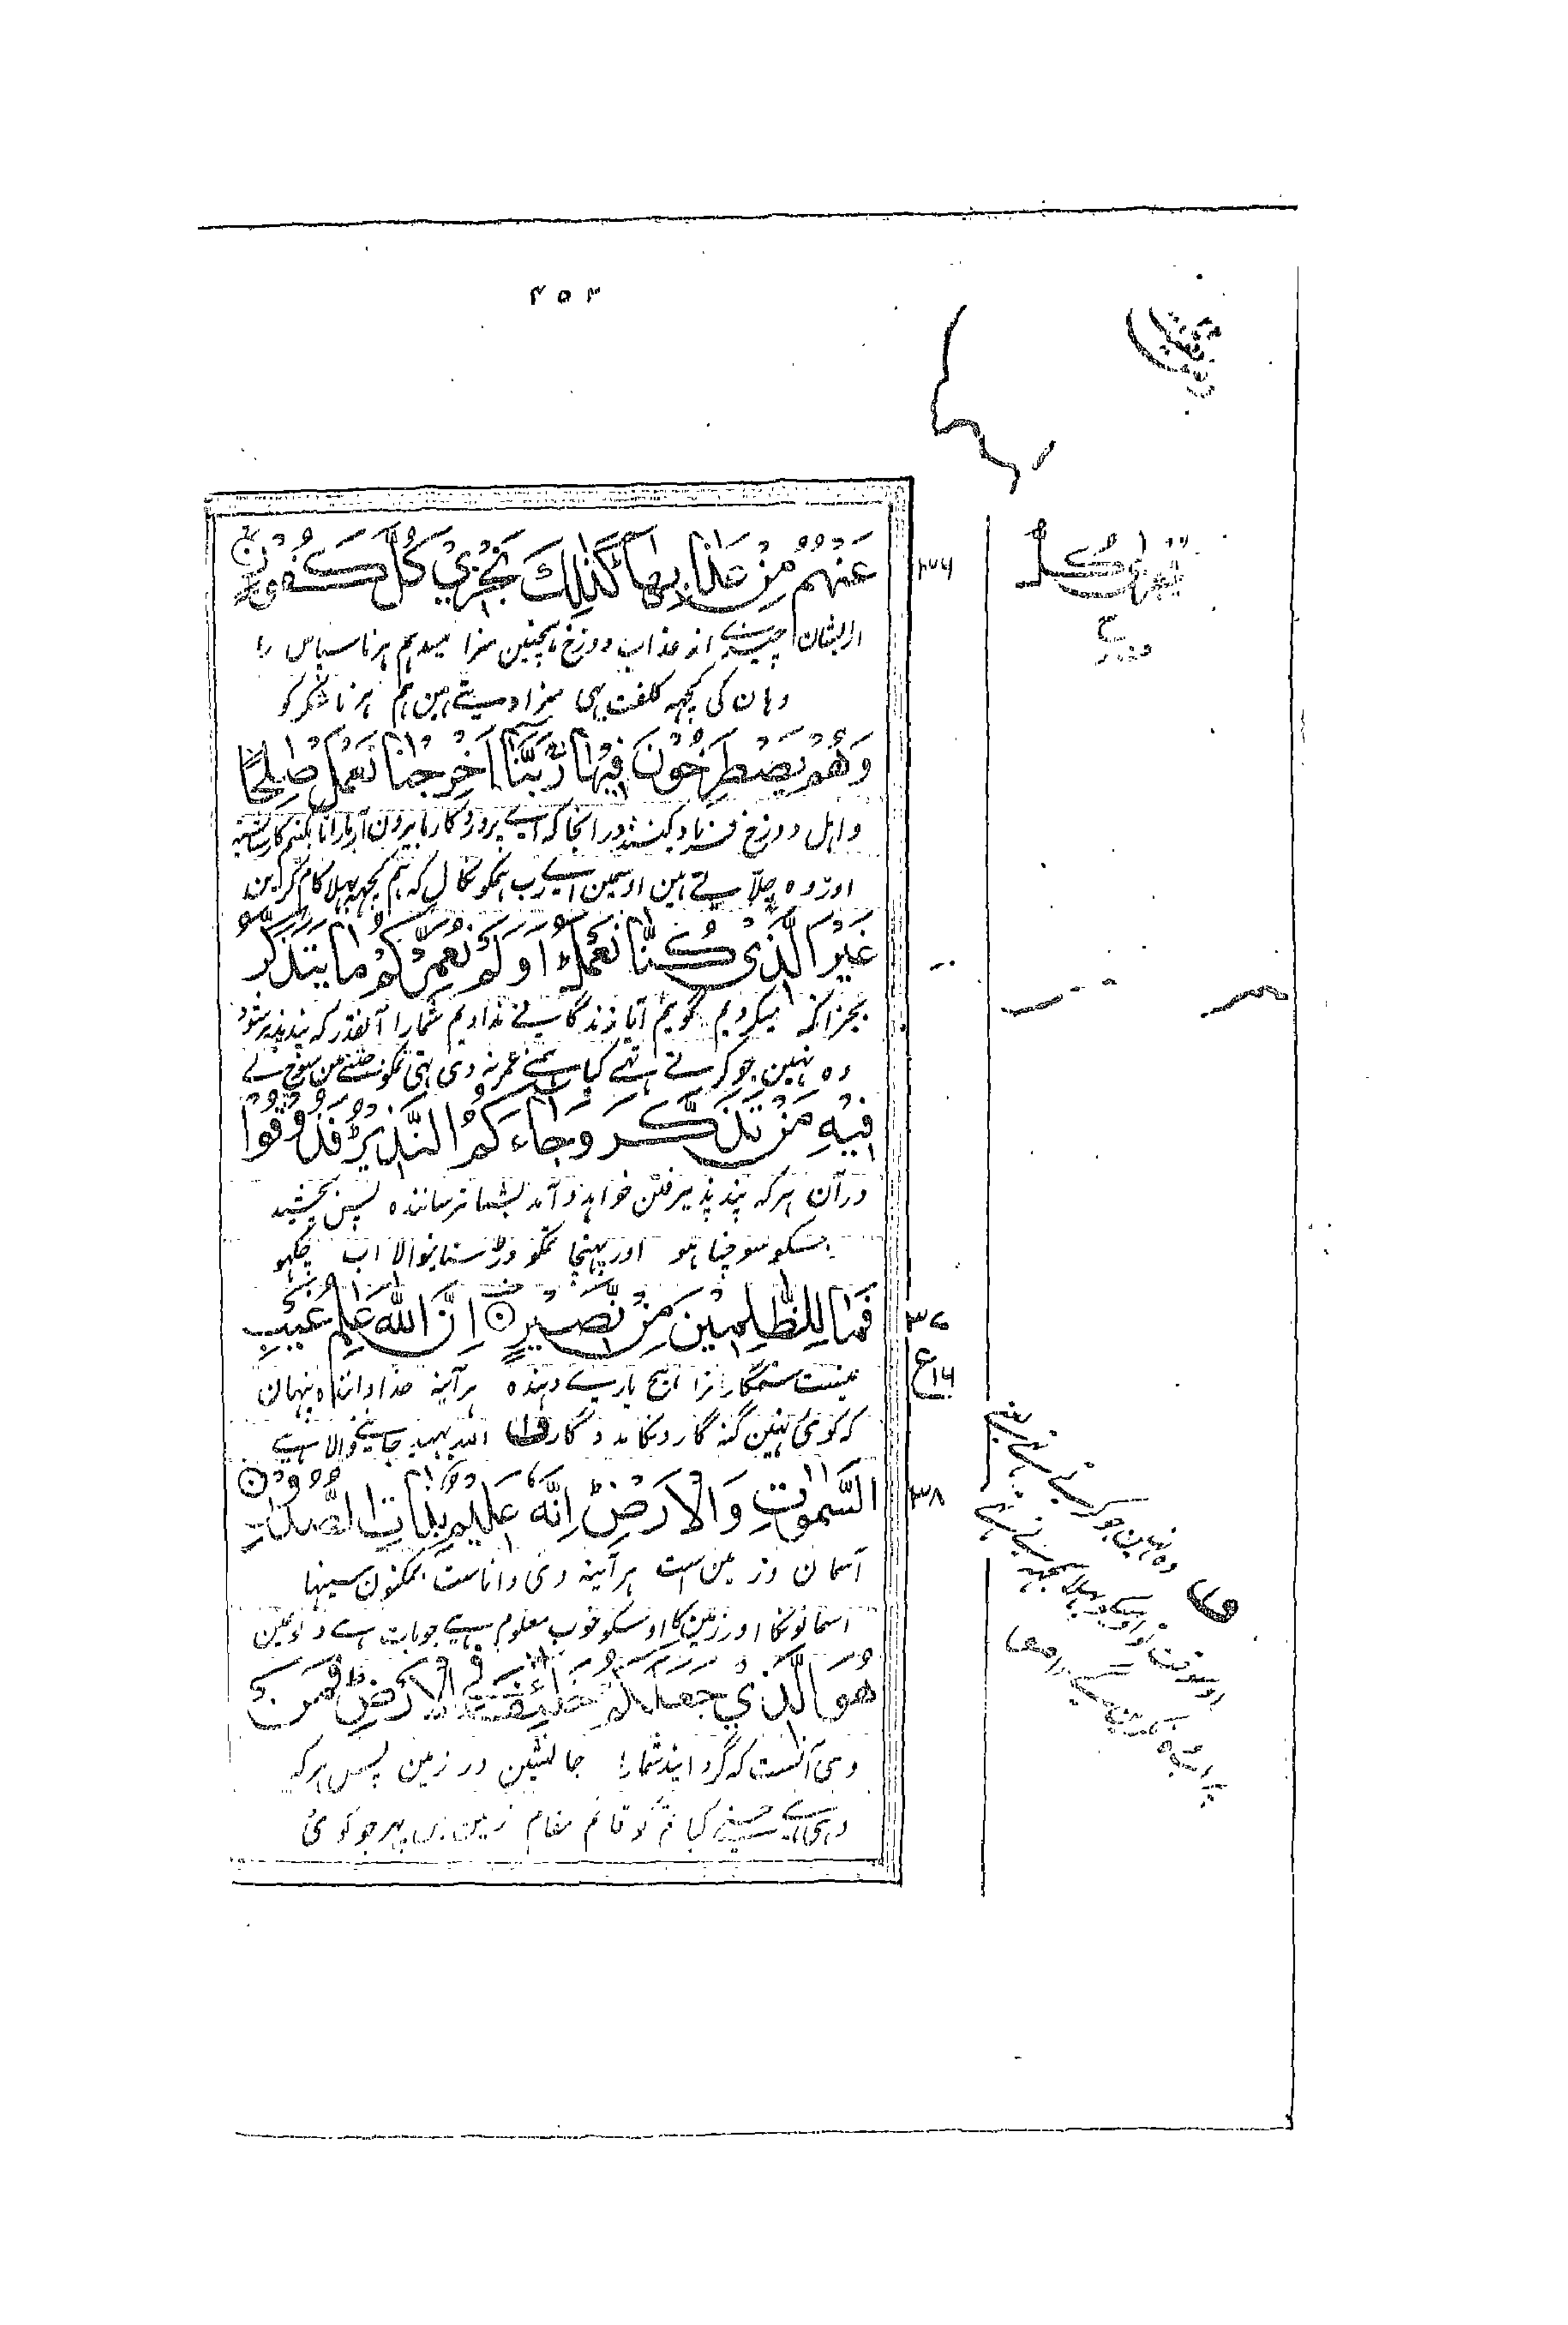 ۲۵۳
عَنْهُمْ مِّنْ عَذَابِهَا كَذٰلِكَ نَجْزِيْ كُلَّ كَفُوْرٍ
۳۶
ازایشان چیزے از عذاب دوزخ همچنین سزا میدهیم هر ناسپاس را
وہان کی کچھہ کلفت یہی سزا دیتے ہین ہم ہر ناشکر کو
وَهُمْ يَصْطَرِخُوْنَ فِيْهَا رَبَّنَا اَخْرِجْنَا نَعْمَلْ صَالِحًا
و اہل دوزخ فریاد کنند در انجا کہ اے پروردگار ما بیرون آر مارا تا بکنیم کار شایسته
اور وہ چلّاتے ہین اوسمین اے رب ہمکو نکال کہ ہم کچھہ بھلا کام کرلین
غَيْرَ الَّذِيْ كُنَّا نَعْمَلُ اَوَلَمْ نُعَمِّرْكُمْ مَّا يَتَذَكَّرُ
بجز آنکہ میکردیم گویم آیا زندگانے ندادیم شمارا آنقدر کہ پندپذیر شود
وہ نہین جو کرتے تہے کیا ہمنے عمر نہ دی تہی تمکو جتنے مین سوچ لے
فِيْهِ مَنْ تَذَكَّرَ وَجَاءَكُمُ النَّذِيْرُ فَذُوْقُوْا
در آن ہر کہ پند پذیرفتن خواہد و آمد بشما ترسانندہ پس بچشید
جسکو سوچنا ہو اور پہنچا تمکو ڈر سنانیوالا اب چکہو
فَمَا لِلظّٰلِمِيْنَ مِنْ نَّصِيْرٍ اِنَّ اللّٰهَ عٰلِمُ غَيْبِ
۳۷
نیست ستمگارانرا ہیچ یارے دہندہ ہر آینہ خدا دانندہ پنہان
۱۶ع
کہ کوئی نہین گنہگارونکا مددگار ف اللہ بہید جاننے والا ہے
السَّمٰوٰتِ وَالْاَرْضِ اِنَّهٗ عَلِيْمٌ بِذَاتِ الصُّدُوْرِ
۳۸
آسمان و زمین است ہر آینہ وی داناست بمکنون سینہا
اسمانونکا اور زمین کا اوسکو خوب معلوم ہے جو بات ہے دلونمین
هُوَ الَّذِيْ جَعَلَكُمْ خَلٰٓئِفَ فِي الْاَرْضِ فَمَنْ كَ
وی آنست کہ گردانید شمارا جانشین در زمین پس ہر کہ
وہی ہے جسنے کیا تم کو قائم مقام زمین مین پہر جو کوئی
ف وہ نہین جو کرتے تہے